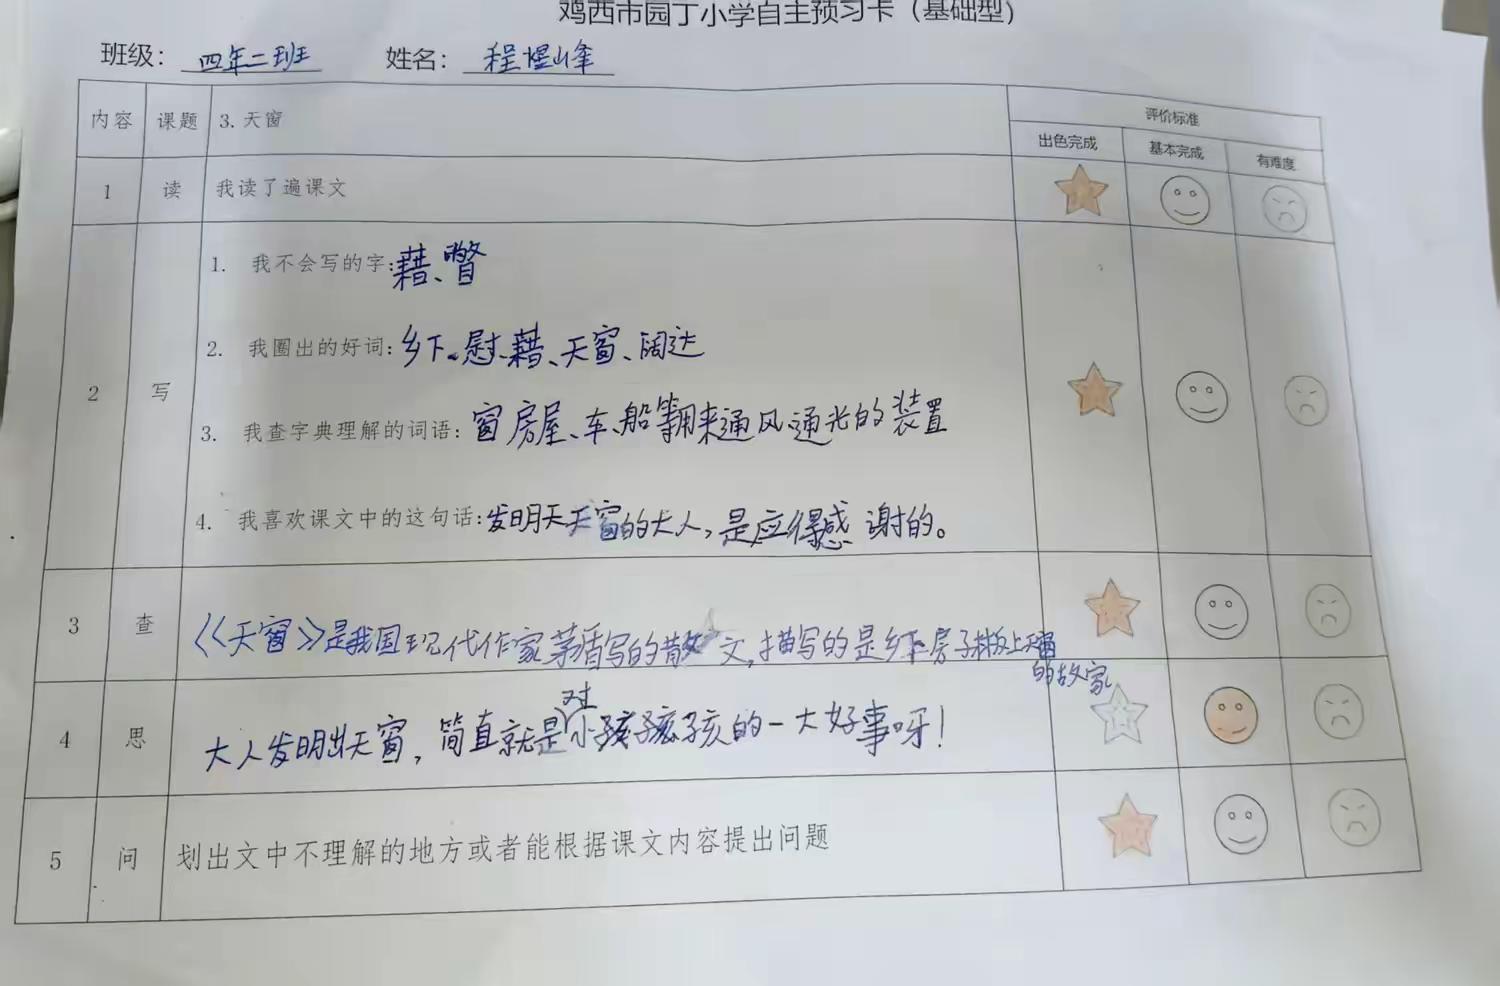 鸡西市园丁小学自主预习卡（基础型）
班级： 四年二班 姓名： 程煜峰
内容 课题 3.天窗 评价标准
出色完成 基本完成 有难度
1 读 我读了遍课文
2 写
1. 我不会写的字：藉、瞥
2. 我圈出的好词：乡下、慰藉、天窗、阔达
3. 我查字典理解的词语：窗房屋、车、船等用来通风通光的装置
4. 我喜欢课文中的这句话：发明天天窗的大人，是应得感谢的。
3 查 《天窗》是我国现代作家茅盾写的散文，描写的是乡下房子
的故家
4 思 大人发明出天窗，简直就是对小孩孩子孩的一大好事呀！
5 问 划出文中不理解的地方或者能根据课文内容提出问题